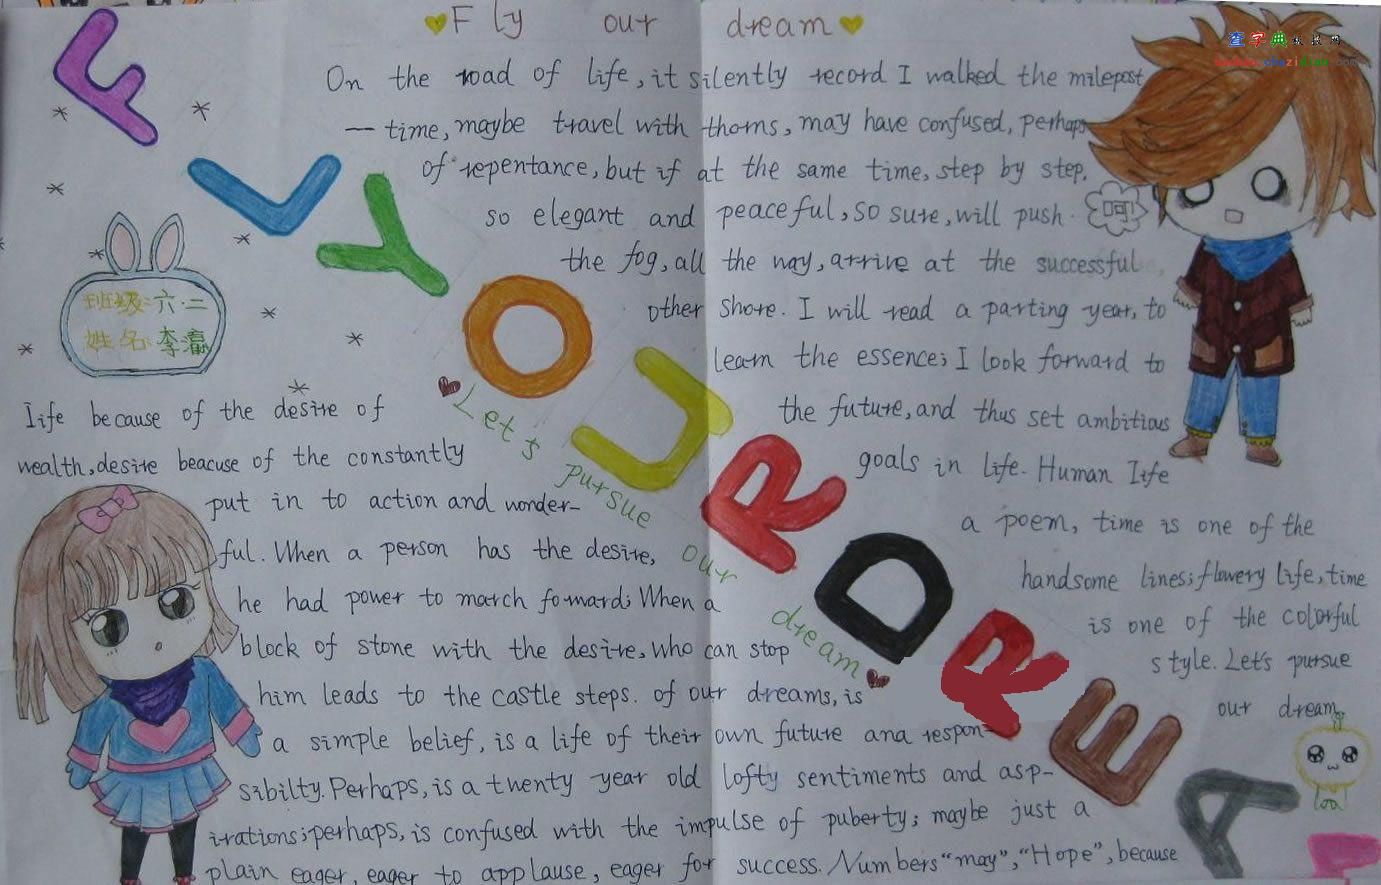 Fly our dream
On the road of life, it silently record I walked the milepost
— time, maybe travel with thorns, may have confused, perhaps
of repentance, but if at the same time, step by step,
so elegant and peaceful, so sure, will push
the fog, all the way, arrive at the successful
other shore. I will read a parting year, to
learn the essence; I look forward to
the future, and thus set ambitious
goals in life. Human life
a poem, time is one of the
handsome lines; flowery life, time
is one of the colorful
style. Let's pursue
our dream
呵!
FLY OUR DREA
Let's pursue our dream
班级:六·二
姓名:李瀛
Life because of the desire of
wealth, desire beacuse of the constantly
put in to action and wonder-
ful. When a person has the desire,
he had power to march forward; When a
block of stone with the desire, who can stop
him leads to the castle steps. of our dreams, is
a simple belief, is a life of their own future and respon-
sibilty. Perhaps, is a twenty year old lofty sentiments and asp-
irations; perhaps, is confused with the impulse of puberty; maybe just a
plain eager, eager to applause, eager for success. Numbers "may", "Hope", because
查字典